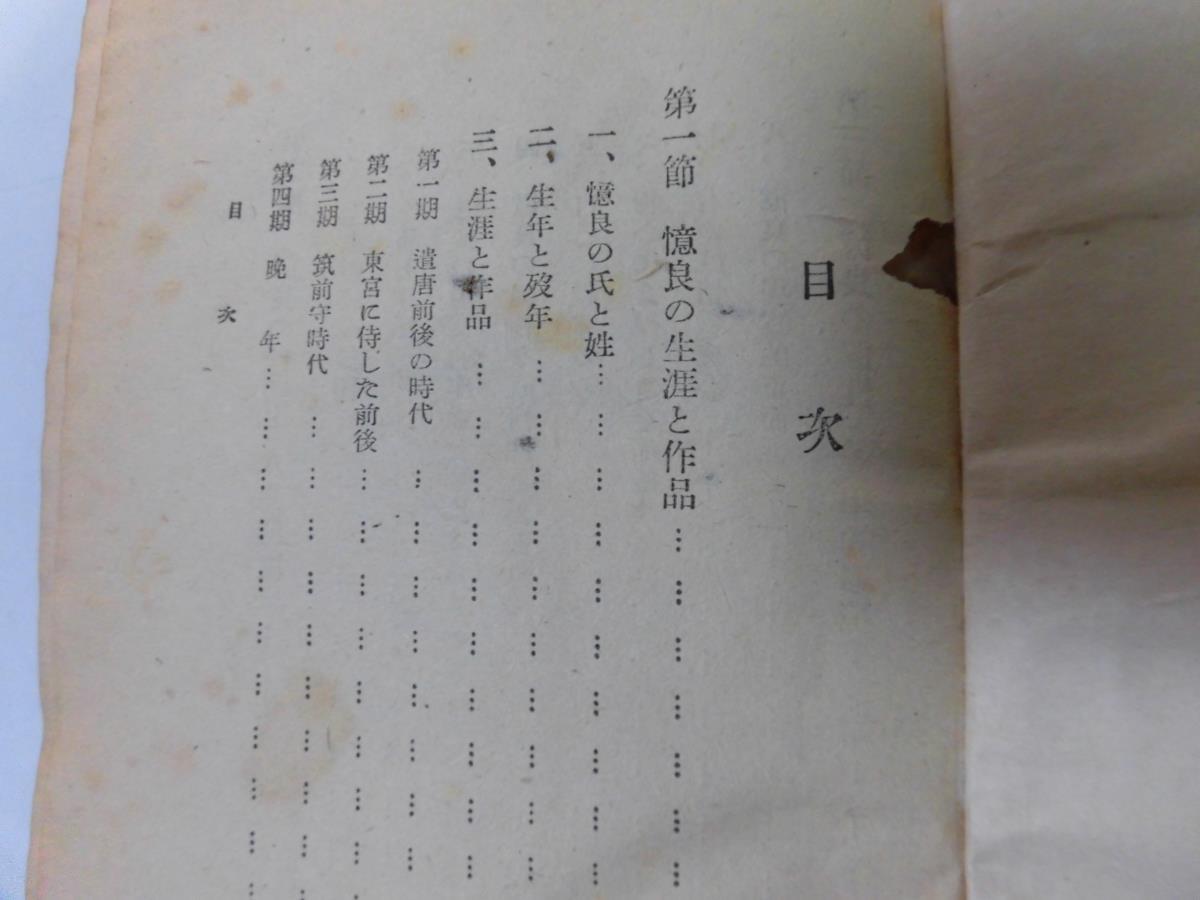 目次
第一節 憶良の生涯と作品………………………………
一、憶良の氏と姓……………………………
二、生年と歿年……………………………
三、生涯と作品……………………………
第一期 遣唐前後の時代…………………………
第二期 東宮に侍した前後…………………………
第三期 筑前守時代……………………………
第四期 晩年……………………………
目次